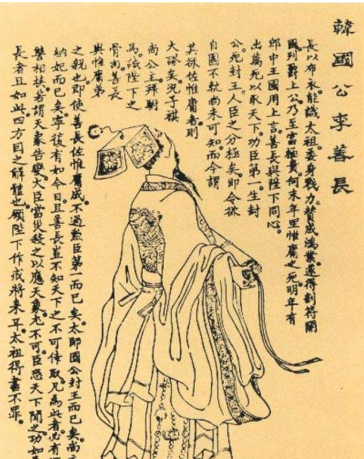 韓國公李善長
長以布衣能識太祖委身戮力贊成鴻業遂得剖符開
國列爵上公乃至富極貴何末年惟庸之死明年有
郎中王國用上言善長與陛下同心
出萬死以取天下功臣第一生封
公死封王人臣之分極矣即令欲
自圖不軌尚未可知而今謂
其欲佐惟庸者則
大謬矣況子祺
尚公主拜駙
馬誠陛下之
骨肉善長
與惟庸第
之親也即使善長佐惟庸成不過勲臣第一而已矣太師國公封王而已矣尚
納妃而已矣寧復有如今日且善長豈不知天下之不可倖取凡爲此者必有
讐相挾若謂天象告變大臣當災殺之以應天象尤不可臣恐天下聞之功如
長者且如此四方因之解體也願陛下作戒將來耳太祖得書不罪。